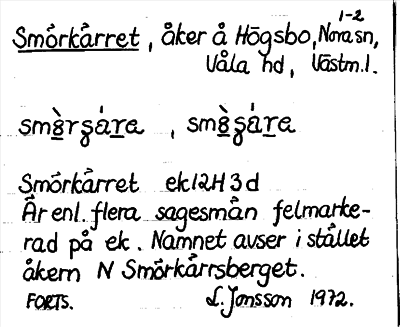 1-2
Smörkärret, åker å Högsbo, Nora sn,
Våla hd, Västm. l.
smö̀rʒár̲a , smö̀ʒár̲a
Smörkärret ek 12H 3d
Är enl. flera sagesmän felmarke-
rad på ek. Namnet avser i stället
åkern N Smörkärrsberget.
FORTS. L. Jonsson 1972.